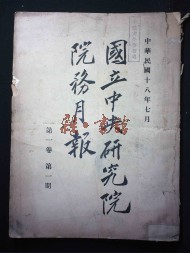 中華民國十八年七月
國立中央研究院
院務月報
第一卷 第一期